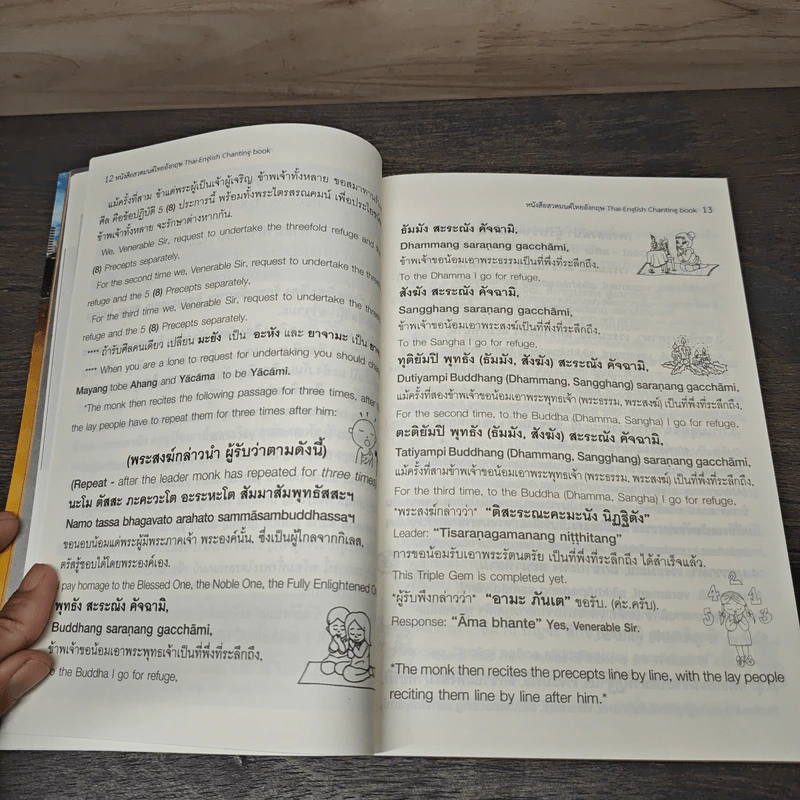 12 หนังสือสวดมนต์ไทยอังกฤษ Thai-English Chanting book
แม้ครั้งที่สาม ข้าแต่พระผู้เป็นเจ้าผู้เจริญ ข้าพเจ้าทั้งหลาย ขอสมาทาน
ศีล คือข้อปฏิบัติ 5 (8) ประการนี้ พร้อมทั้งพระไตรสรณคมน์ เพื่อประโยชน์
ข้าพเจ้าทั้งหลาย จะรักษาต่างหากกัน.
We, Venerable Sir, request to undertake the threefold refuge and
(8) Precepts separately.
For the second time we, Venerable Sir, request to undertake the
refuge and the 5 (8) Precepts separately.
For the third time we, Venerable Sir, request to undertake the
refuge and the 5 (8) Precepts separately.
**** ถ้ารับศีลคนเดียว เปลี่ยน มะยัง เป็น อะหัง และ ยาจามะ เป็น
**** When you are a lone to request for undertaking you should
Mayang tobe Ahang and Yācāma to be Yācāmi.
*The monk then recites the following passage for three times,
the lay people have to repeat them for three times after him:
(พระสงฆ์กล่าวนำ ผู้รับว่าตามดังนี้)
(Repeat - after the leader monk has repeated for three times
นะโม ตัสสะ ภะคะวะโต อะระหะโต สัมมาสัมพุทธัสสะฯ
Namo tassa bhagavato arahato sammāsambuddhassaฯ
ขอนอบน้อมแด่พระผู้มีพระภาคเจ้า พระองค์นั้น, ซึ่งเป็นผู้ไกลจากกิเลส,
ตรัสรู้ชอบได้โดยพระองค์เอง.
I pay homage to the Blessed One, the Noble One, the Fully Enlightened
พุทธัง สะระณัง คัจฉามิ,
Buddhang saraṇang gacchāmi,
ข้าพเจ้าขอน้อมเอาพระพุทธเจ้าเป็นที่พึ่งที่ระลึกถึง,
to the Buddha I go for refuge,
หนังสือสวดมนต์ไทยอังกฤษ Thai-English Chanting book 13
ธัมมัง สะระณัง คัจฉามิ,
Dhammang saraṇang gacchāmi,
ข้าพเจ้าขอน้อมเอาพระธรรมเป็นที่พึ่งที่ระลึกถึง,
To the Dhamma I go for refuge,
สังฆัง สะระณัง คัจฉามิ,
Sangghang saraṇang gacchāmi,
ข้าพเจ้าขอน้อมเอาพระสงฆ์เป็นที่พึ่งที่ระลึกถึง,
To the Sangha I go for refuge,
ทุติยัมปิ พุทธัง (ธัมมัง, สังฆัง) สะระณัง คัจฉามิ,
Dutiyampi Buddhang (Dhammang, Sangghang) saraṇang gacchāmi,
แม้ครั้งที่สองข้าพเจ้าขอน้อมเอาพระพุทธเจ้า (พระธรรม, พระสงฆ์) เป็นที่พึ่งที่ระลึกถึง,
For the second time, to the Buddha (Dhamma, Sangha) I go for refuge,
ตะติยัมปิ พุทธัง (ธัมมัง, สังฆัง) สะระณัง คัจฉามิ,
Tatiyampi Buddhang (Dhammang, Sangghang) saraṇang gacchāmi,
แม้ครั้งที่สามข้าพเจ้าขอน้อมเอาพระพุทธเจ้า (พระธรรม, พระสงฆ์) เป็นที่พึ่งที่ระลึกถึง,
For the third time, to the Buddha (Dhamma, Sangha) I go for refuge,
*พระสงฆ์กล่าวว่า* "ติสะระณะคะมะนัง นิฏฐิตัง"
Leader: "Tisaraṇagamanang niṭṭhitang"
การขอน้อมรับเอาพระรัตนตรัย เป็นที่พึ่งที่ระลึกถึง ได้สำเร็จแล้ว.
This Triple Gem is completed yet.
*ผู้รับพึงกล่าวว่า* "อามะ ภันเต" ขอรับ. (ค่ะ.ครับ).
Response: "Āma bhante" Yes, Venerable Sir.
5 4 2 1 3
*The monk then recites the precepts line by line, with the lay people
reciting them line by line after him.*